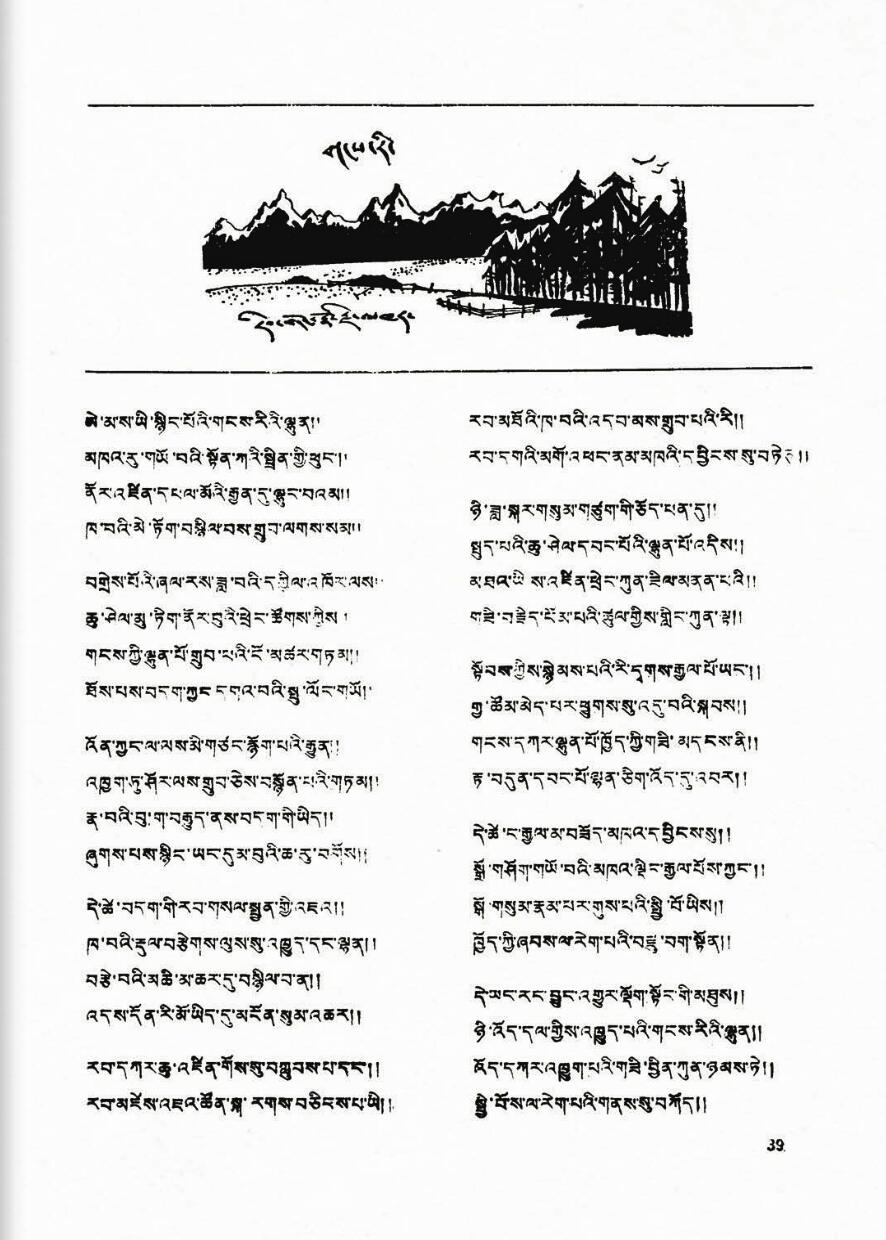 གངས་རི།
ཨེ་མ་ས་ཡི་སྙིང་པོའི་གངས་རིའི་ལྷུན།།
མཁའ་རུ་གཡོ་བའི་སྟོན་ཀའི་སྤྲིན་གྱི་ཕུང་།།
ནོར་འཛིན་དཔལ་མོའི་རྒྱན་དུ་ལྷུང་བའམ།།
ཁ་བའི་མེ་ཏོག་བསྙིལ་བས་གྲུབ་ལགས་སམ།།
བགྲེས་པོའི་ཞལ་རས་ཟླ་བའི་དཀྱིལ་འཁོར་ལས།
ཆུ་ཤེལ་མུ་ཏིག་ནོར་བུའི་ཕྲེང་ཚོགས་ཀྱིས།
གངས་ཀྱི་ལྷུན་པོ་གྲུབ་པའི་ངོ་མཚར་གཏམ།།
ཐོས་པས་བདག་ཀྱང་དགའ་བའི་སྤུ་ལོང་གཡོ།།
འོན་ཀྱང་ལ་ལས་མེ་གཙང་རྙོག་པའི་རྒྱུན།།
འཁྱག་ཏུ་ཤོར་ལས་གྲུབ་ཅེས་བསྙོན་པའི་གཏམ།།
རྣ་བའི་བུ་ག་བརྒྱུད་ནས་བདག་གི་ཡིད།།
ཞུགས་པས་སྙིང་ཡང་དུམ་བུའི་ཆ་རུ་བགོས།།
དེ་ཚེ་བདག་གི་རབ་གསལ་སྤྱན་གྱི་འཛའ།།
ཁ་བའི་རྡུལ་བརྩེགས་ལུས་སུ་འཁྱུད་དང་ལྷན།།
བརྩེ་བའི་མཆི་མ་ཆར་དུ་བསྙིལ་བ་ན།།
འདས་དོན་རི་མོ་ཡིད་དུ་མངོན་སུམ་འཆར།།
རབ་དཀར་ཆུ་འཛིན་གོས་སུ་བཀླུབས་པ་དང་།།
རབ་མཛེས་འཇའ་ཚོན་སྐ་རགས་བཅིངས་པ་ཡི།།
རབ་མཐོའི་ཁ་བའི་འདབ་མས་གྲུབ་པའི་རི།།
རབ་དགའི་མགོ་འཕང་ནམ་མཁའི་དབྱིངས་སུ་བཏེག།།
ཉི་ཟླ་སྐར་གསུམ་གཙུག་གི་ཅོད་པན་དུ།།
སྤུད་པའི་ཆུ་ཤེལ་དབང་པོའི་ལྷུན་པོ་འདིས།།
མཐའ་ཡི་ས་འཛིན་ཕྲེང་ཀུན་ཟིལ་མནན་པའི།།
གཟི་བརྗིད་ངོམ་པའི་ཚུལ་གྱིས་གླིང་ཀུན་ལྟ།།
སྟོབས་ཀྱིས་སྙེམས་པའི་རི་དྭགས་རྒྱལ་པོ་ཡང་།།
གྱ་ཚོམ་མེད་པར་ཕྱུགས་སུ་འདུ་བའི་སྐབས།།
གངས་དཀར་ལྷུན་པོ་ཁྱོད་ཀྱི་གཟི་མདངས་ནི།།
རྟ་བདུན་དབང་པོ་ལྷན་ཅིག་འོད་དུ་འབར།།
དེ་ཚེ་ང་རྒྱལ་མ་བཟོད་མཁའ་དབྱིངས་སུ།།
སྒྲོ་གཤོག་གཡོ་བའི་མཁའ་ལྡིང་རྒྱལ་པོས་ཀྱང་།།
སྒོ་གསུམ་རྣམ་པར་གུས་པའི་སྤྱི་བོ་ཡིས།།
ཁྱོད་ཀྱི་ཞབས་ལ་རེག་པའི་བརྫུ་བག་སྟོན།།
དེ་ཡང་རང་བྱུང་འགྱུར་ལྡོག་སྟོང་གི་མཐུས།།
ཉི་འོད་དལ་གྱིས་འཁྱུད་པའི་གངས་རིའི་ལྷུན།།
འོད་དཀར་འཁྱུག་པའི་གཟི་བྱིན་ཀུན་ཉམས་ཏེ།།
སྤྱི་བོས་ལ་རེག་པའི་གནས་སུ་བཀོད།།
39